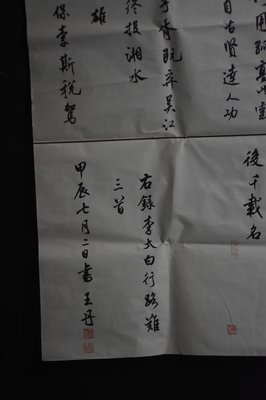 用孤高比雲
自古賢達人功
子胥既棄吳江
終投湘水
雄
保李斯税駕
後千載名
右錄李太白行路難
三首
甲辰七月二日書 王丹